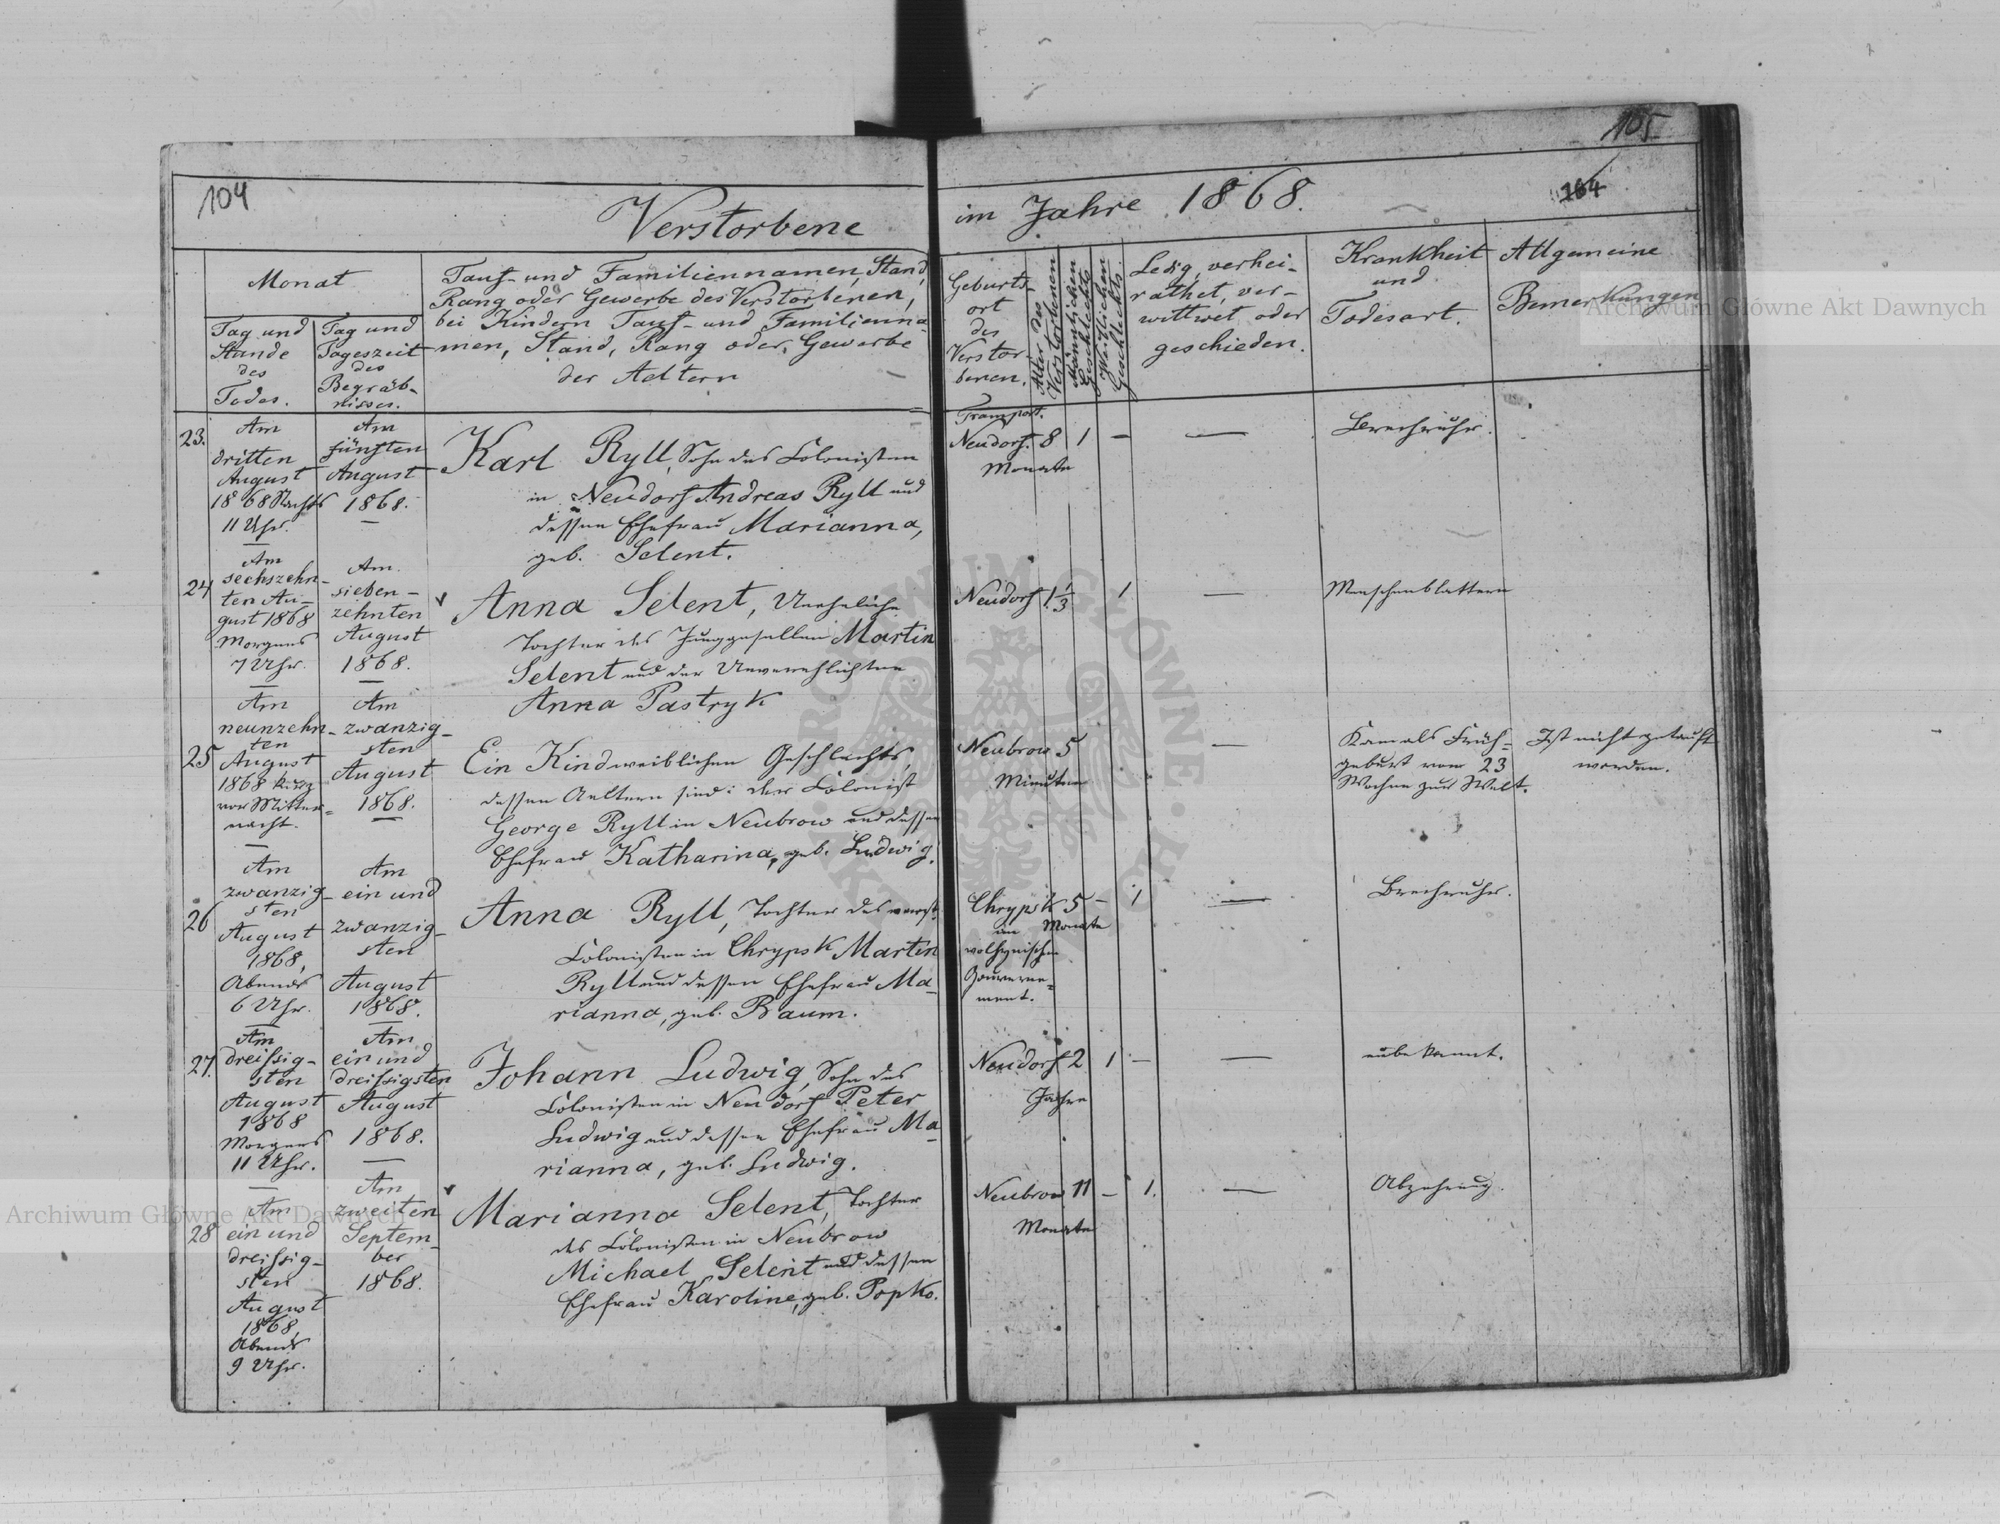 104
105
164
Verstorbene im Jahre 1868.
Monat
Tag und
Stunde
des
Todes.
Tag und
Tageszeit
des
Begräb-
nisses.
Tauf- und Familiennamen, Stand,
Rang oder Gewerbe des Verstorbenen,
bei Kindern Tauf- und Familienna-
men, Stand, Rang oder Gewerbe
der Aeltern
Geburts-
ort
des
Verstor-
benen.
Alter des
Verstorbenen
Männlichen
Geschlechts
Weiblichen
Geschlechts.
Ledig, verhei-
rathet, ver-
wittwet oder
geschieden.
Krankheit
und
Todesart.
Allgemeine
Bemerkungen
23.
Am
dritten
August
1868 Nachts
11 Uhr.
Am
fünften
August
1868.
Karl Ryll, Sohn des Colonisten
in Neudorf Andreas Ryll und
dessen Ehefrau Marianna,
geb. Selent.
Transport.
Neudorf. 8 1 —
Monate
—
Brechruhr.
24
Am
sechszehn-
ten Au-
gust 1868
Morgens
7 Uhr.
Am
sieben-
zehnten
August
1868.
Anna Selent, Uneheliche
Tochter des Junggesellen Martin
Selent und der Unverehlichten
Anna Pastryk
Neudorf 1 1/3 1
—
Menschenblattern
25
Am
neunzehn-
ten
August
1868 kurz
vor Mitter-
nacht.
Am
zwanzig-
sten
August
1868.
Ein Kind weiblichen Geschlechts,
dessen Aeltern sind: der Colonist
George Ryll in Neubrow und dessen
Ehefrau Katharina, geb. Ludwig.
Neubrow 5
Minuten
—
Kam als Früh-
geburt von 23
Wochen zur Welt.
Ist nicht getauft
worden.
26
Am
zwanzig-
sten
August
1868,
Abends
6 Uhr.
Am
ein und
zwanzig-
sten
August
1868.
Anna Ryll, Tochter des verst.
Colonisten in Chrypsk Martin
Ryll und dessen Ehefrau Ma-
rianna, geb. Baum.
Chrypsk 5 — 1
im Monate
wolhynischen
Gouverne-
ment.
—
Brechruhr.
27.
Am
dreißig-
sten
August
1868
Morgens
11 Uhr.
Am
ein und
dreißigsten
August
1868.
Johann Ludwig, Sohn des
Colonisten in Neudorf Peter
Ludwig und dessen Ehefrau Ma-
rianna, geb. Ludwig.
Neudorf 2 1 —
Jahre
—
unbekannt.
28
Am
ein und
dreißig-
sten
August
1868
Abends
9 Uhr.
Am
zweiten
Septem-
ber
1868.
Marianna Selent, Tochter
des Colonisten in Neubrow
Michael Selent und dessen
Ehefrau Karoline, geb. Popko.
Neubrow 11 — 1.
Monate
—
Abzehrung.
Archiwum Główne Akt Dawnych
Archiwum Główne Akt Dawnych